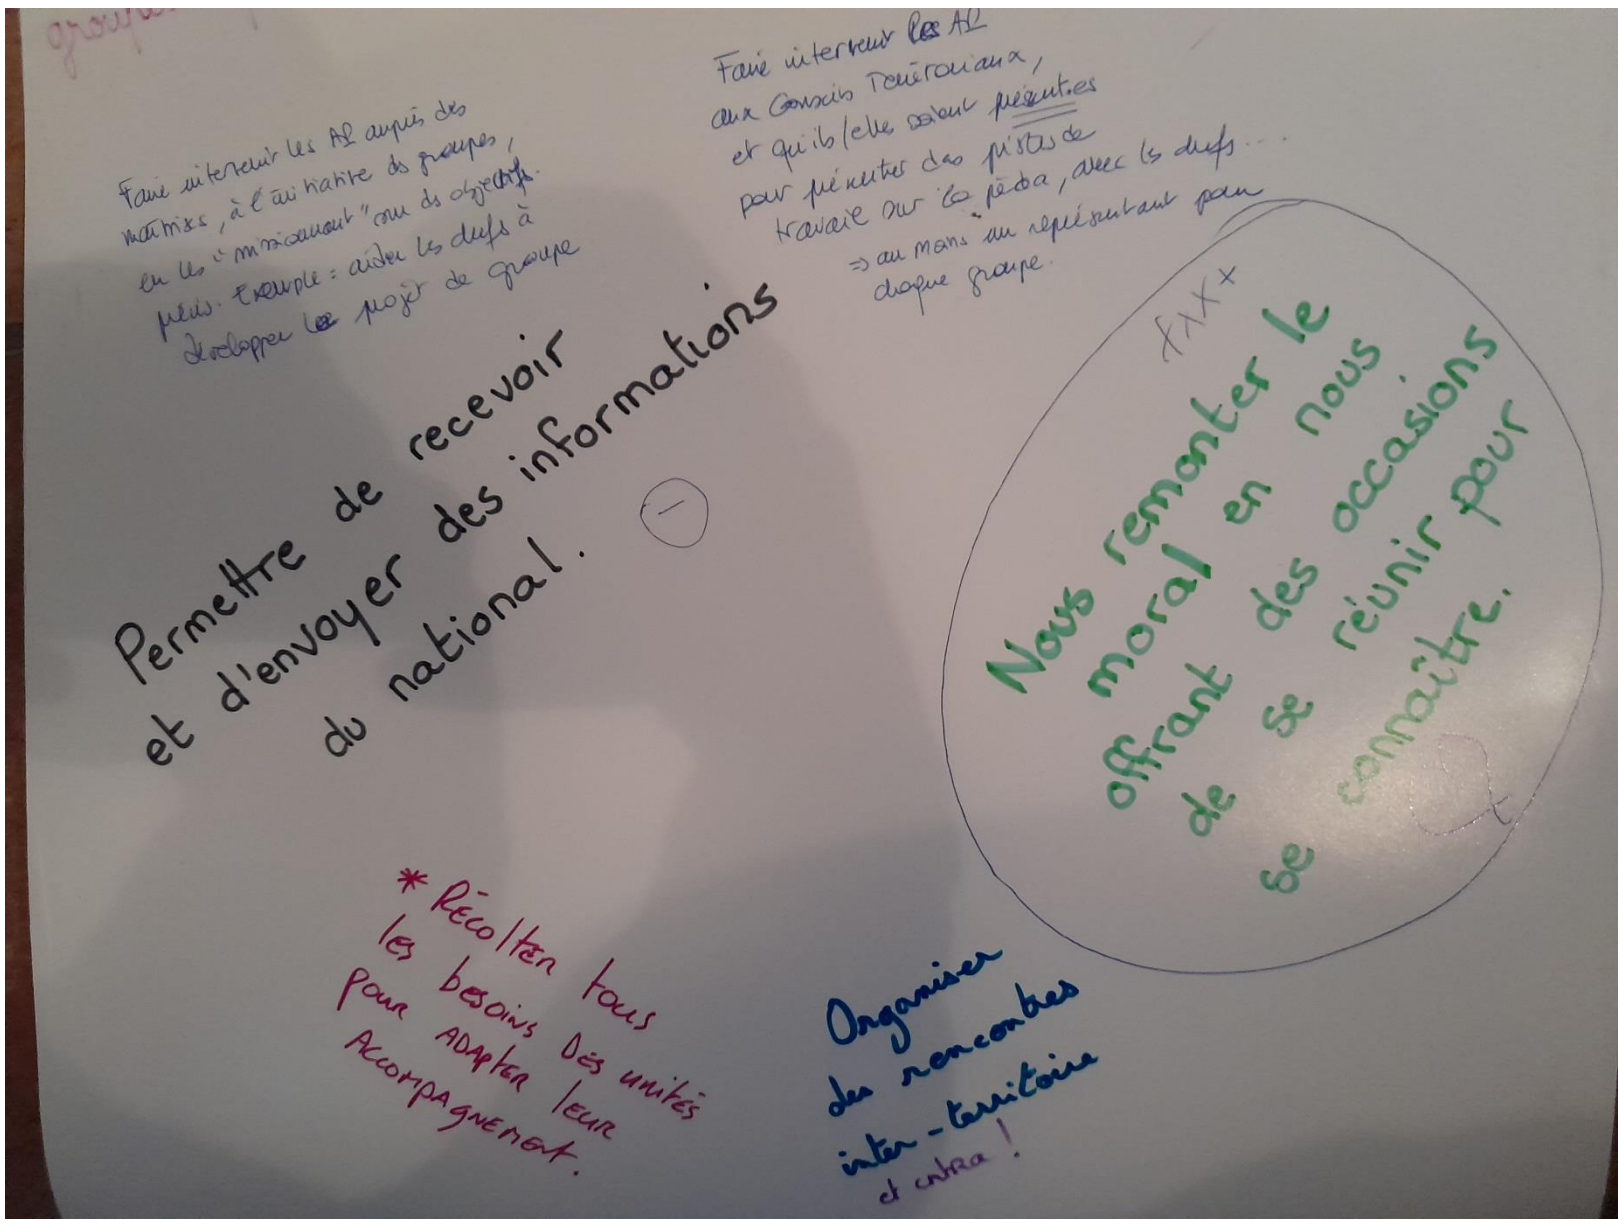 groupe
Faire intervenir les AP auprès des
maîtrises, à l'initiative des groupes,
en les "missionnant" sur des objectifs
précis. Exemple : aider les chefs à
développer le projet de groupe
Faire intervenir les AP
aux Conseils Territoriaux,
et qu'ils/elles soient présent.es
pour présenter des pistes de
travail sur la péda, avec les chefs...
=> au moins un représentant pour
chaque groupe.
Permettre de recevoir
et d'envoyer des informations
du national.
-
xxxx
Nous remonter le
moral en nous
offrant des occasions
de se réunir pour
se connaître.
* Récolter tous
les besoins des unités
pour ADAPTER leur
Accompagnement.
Organiser
des rencontres
inter-territoire
et intra !